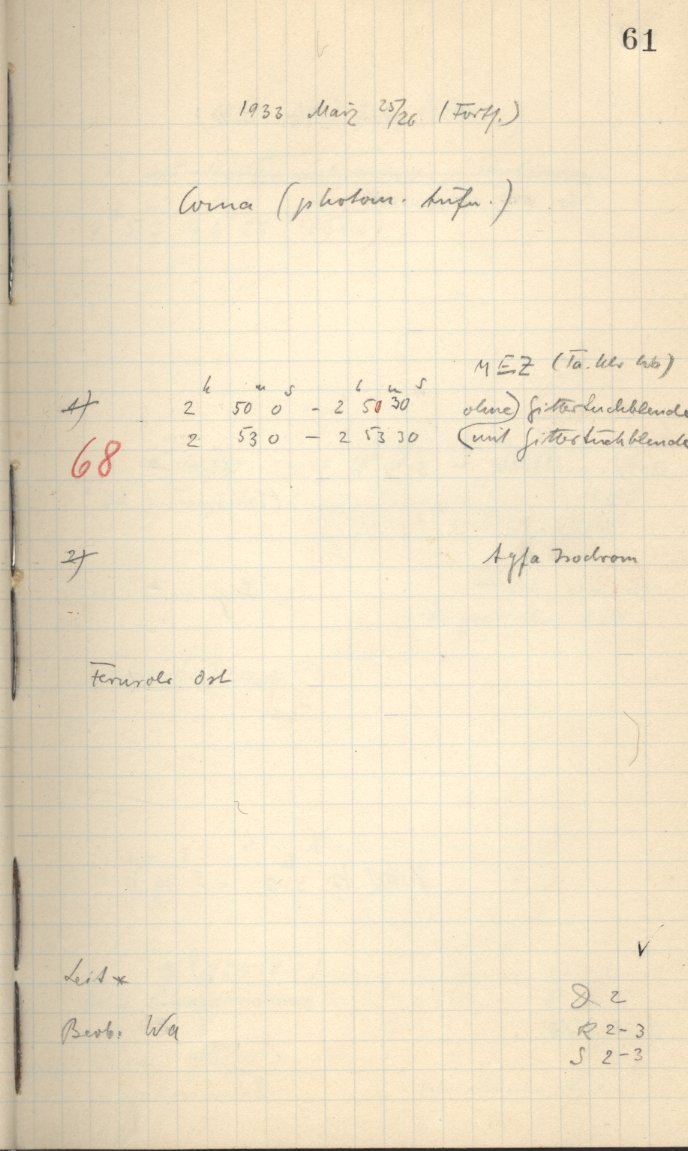 61
1933 März 25/26 (Forts.)
Coma (photom. Aufn.)
MEZ (Ta. Uhr
h m s h m s
1) 2 50 0 - 2 50 30 ohne) Gittertuchblende
2 53 0 - 2 53 30 (mit Gittertuchblende
68
2) Agfa Isochrom
Fernrohr Ost
Leit *
D 2
Beob. Wa R 2-3
S 2-3